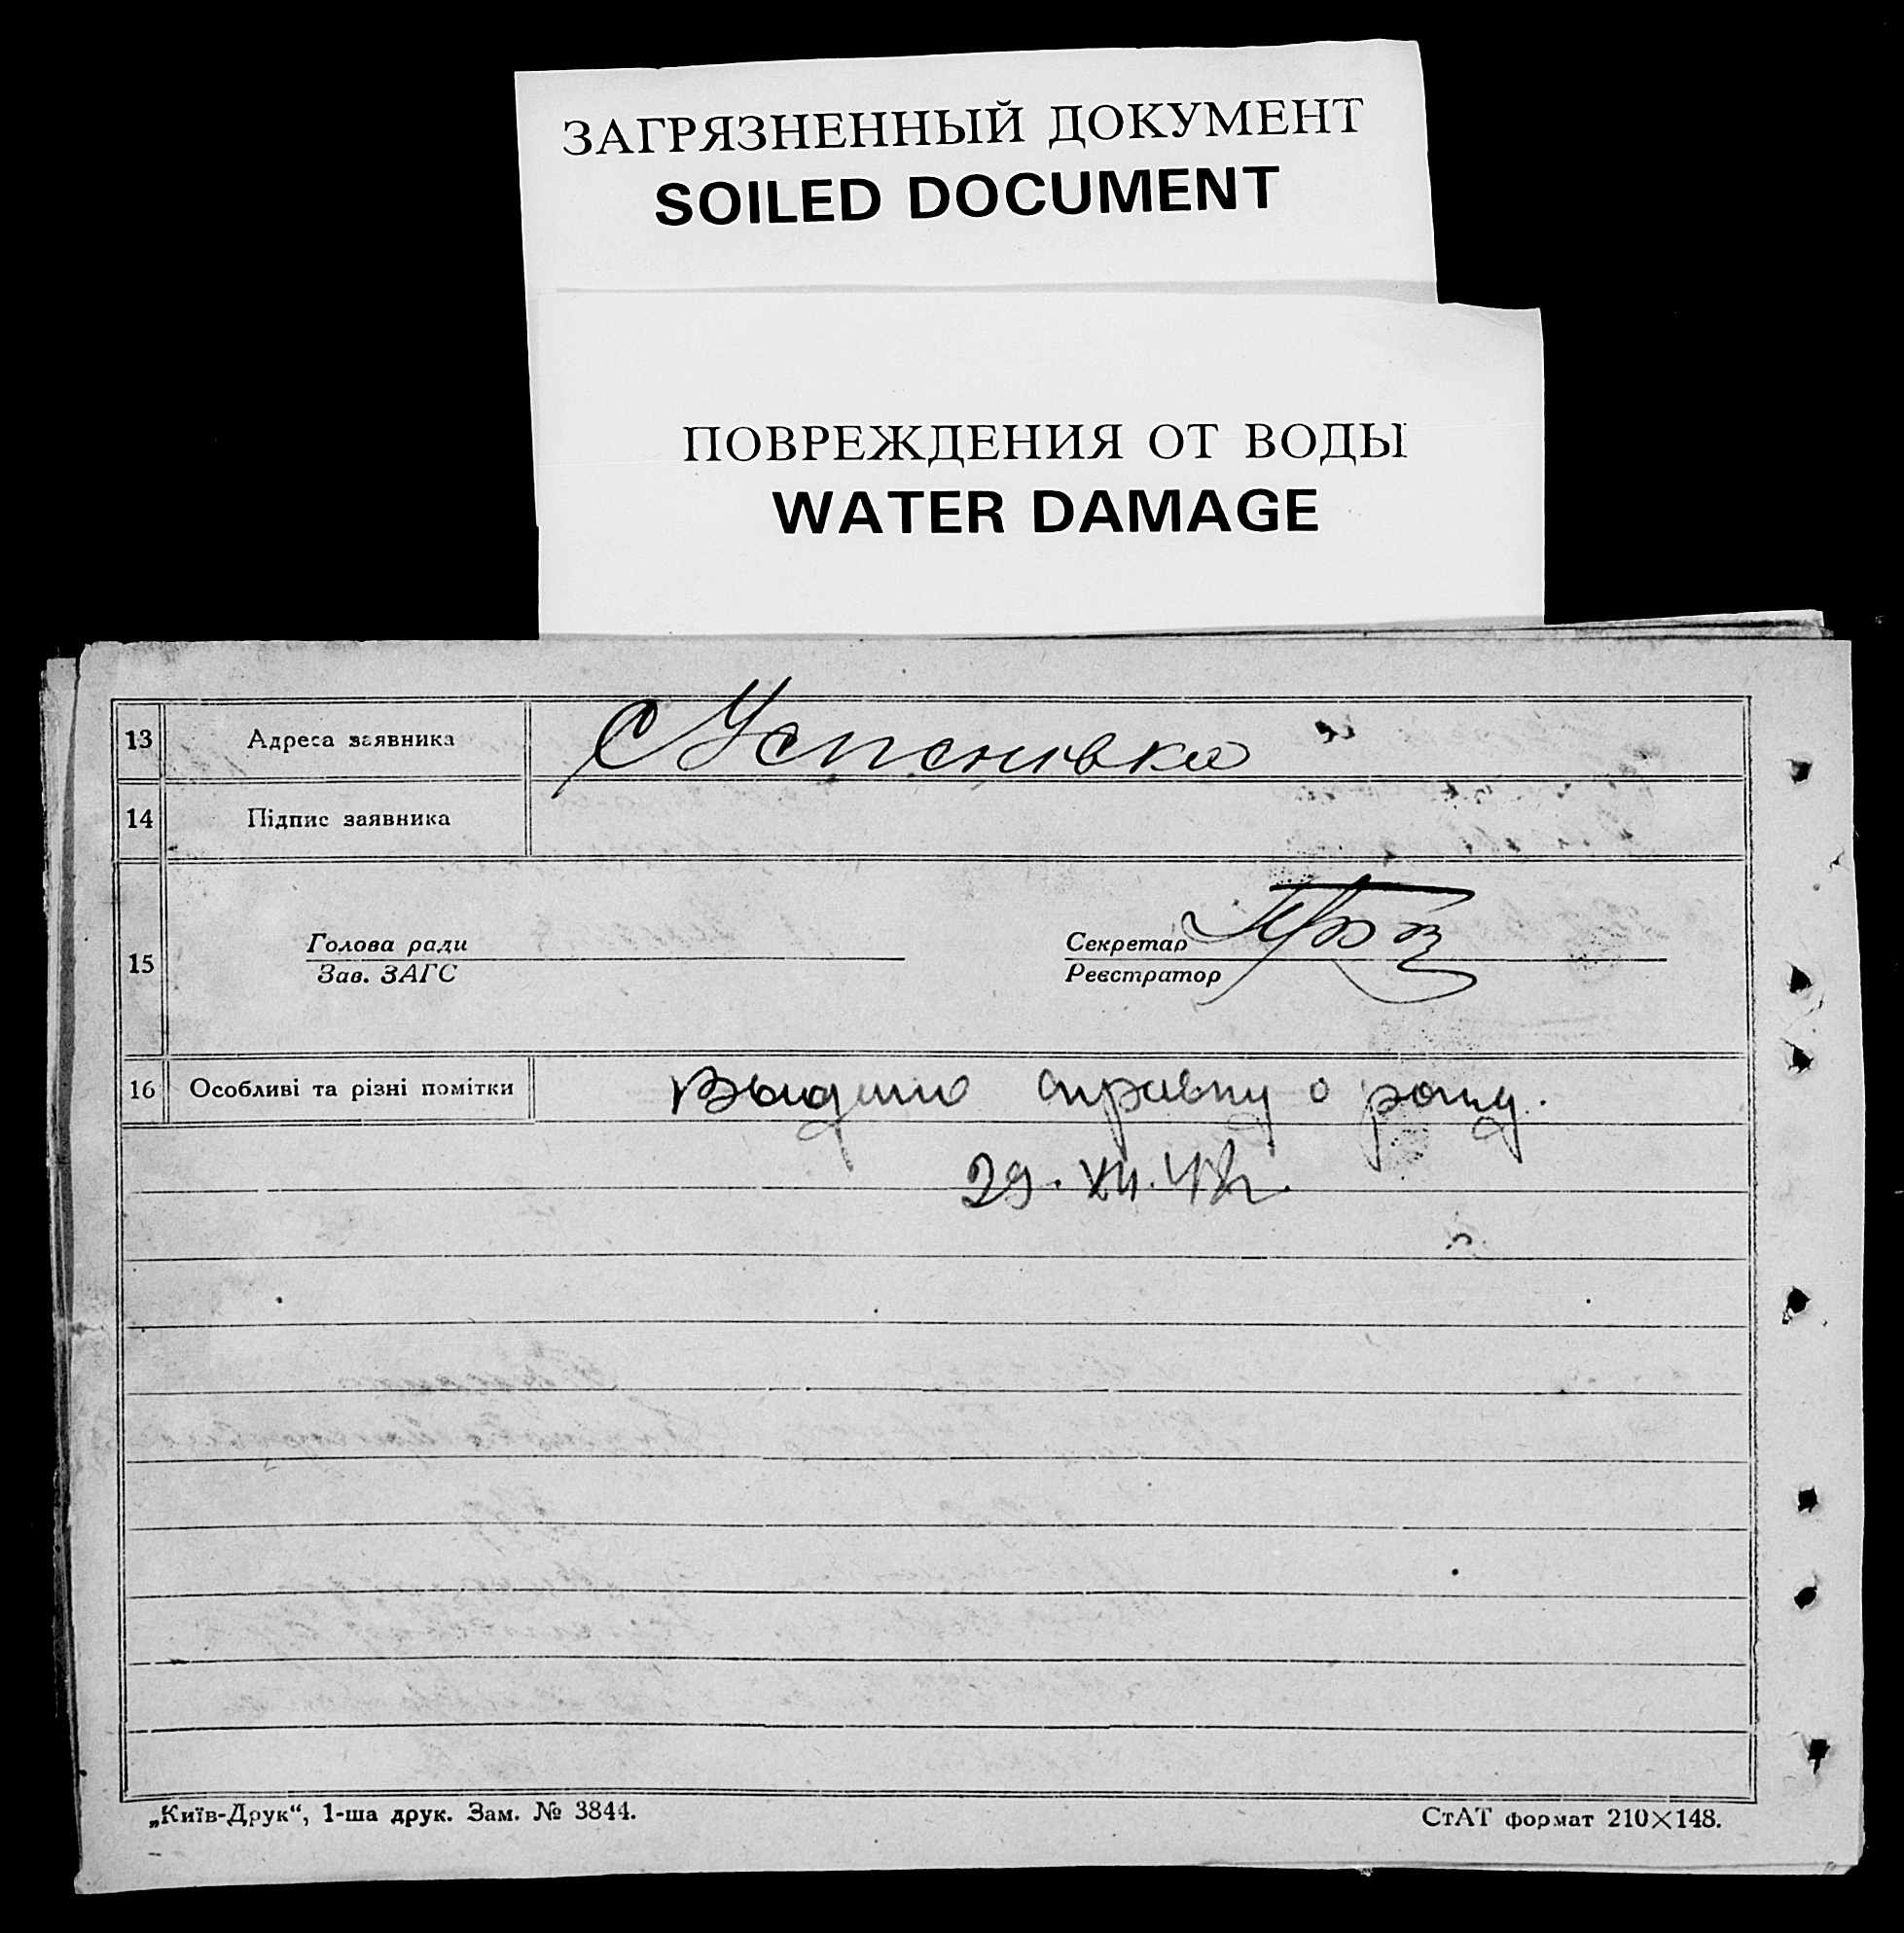 ЗАГРЯЗНЕННЫЙ ДОКУМЕНТ
SOILED DOCUMENT
ПОВРЕЖДЕНИЯ ОТ ВОДЫ
WATER DAMAGE
13 Адреса заявника С Успенивка
14 Підпис заявника
15 Голова ради Секретар
Зав. ЗАГС Реєстратор
16 Особливі та різні помітки справку о рожд.
29. XII.
„Київ-Друк“, 1-ша друк. Зам. № 3844. СтАТ формат 210×148.